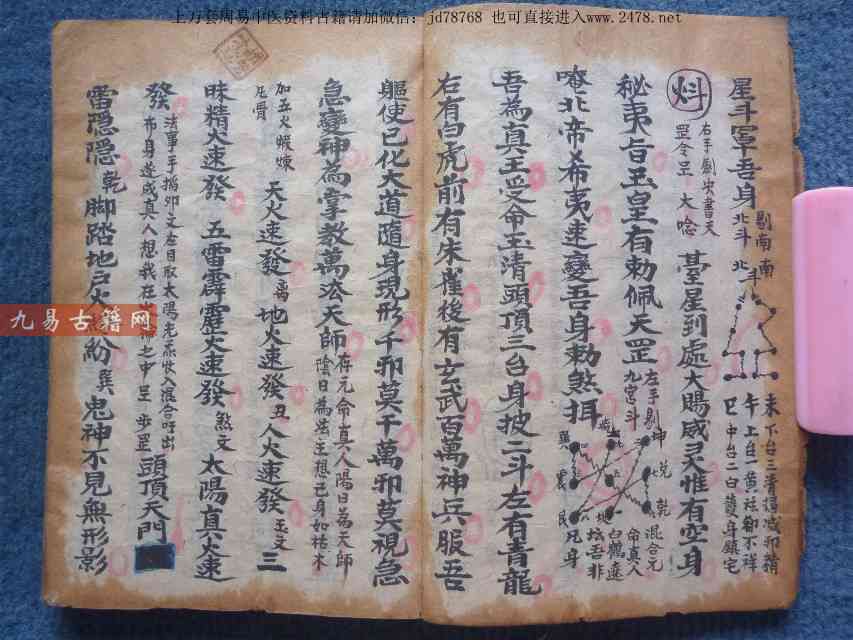 上万套周易中医资料古籍请加微信：jd78768 也可直接进入www.2478.net
星斗罩吾身
北斗
剔南
北斗
南
未下台三清
午上台一黄
巳中台二白護身鎮宅
右手劍央書天
罡令呈 大唸
臺星到處大賜威灵惟有空身
秘夷旨玉皇有勅佩天罡
左手剔
九宮斗
坤
兌
乾
巽
震
混合元
命真人
白鶴遶
坛吾非
凡身
唵北帝希夷速變吾身勅煞摂
吾為真王受命玉清頭頂三台身披二斗左有青龍
右有白虎前有朱雀後有玄武百萬神兵服吾
軀使已化大道隨身現形千邪莫干萬邪莫視急
急變神為掌教萬法天師
存元命真人陽日為天師
陰日為法主想己身如枯木
加五火煅煉
天火速發 离 地火速發 丑 人火速發 玉文 三
昧精火速發 五雷霹靂火速發 煞文 太陽真火速
發
法事手搯卯文左目取太陽光炁收入混合吁出
布身遂成真人想我在
之中呈步罡
頭頂天門
雷隱隱 乾 脚踏地户火
紛 巽 鬼神不見無形影
九易古籍网